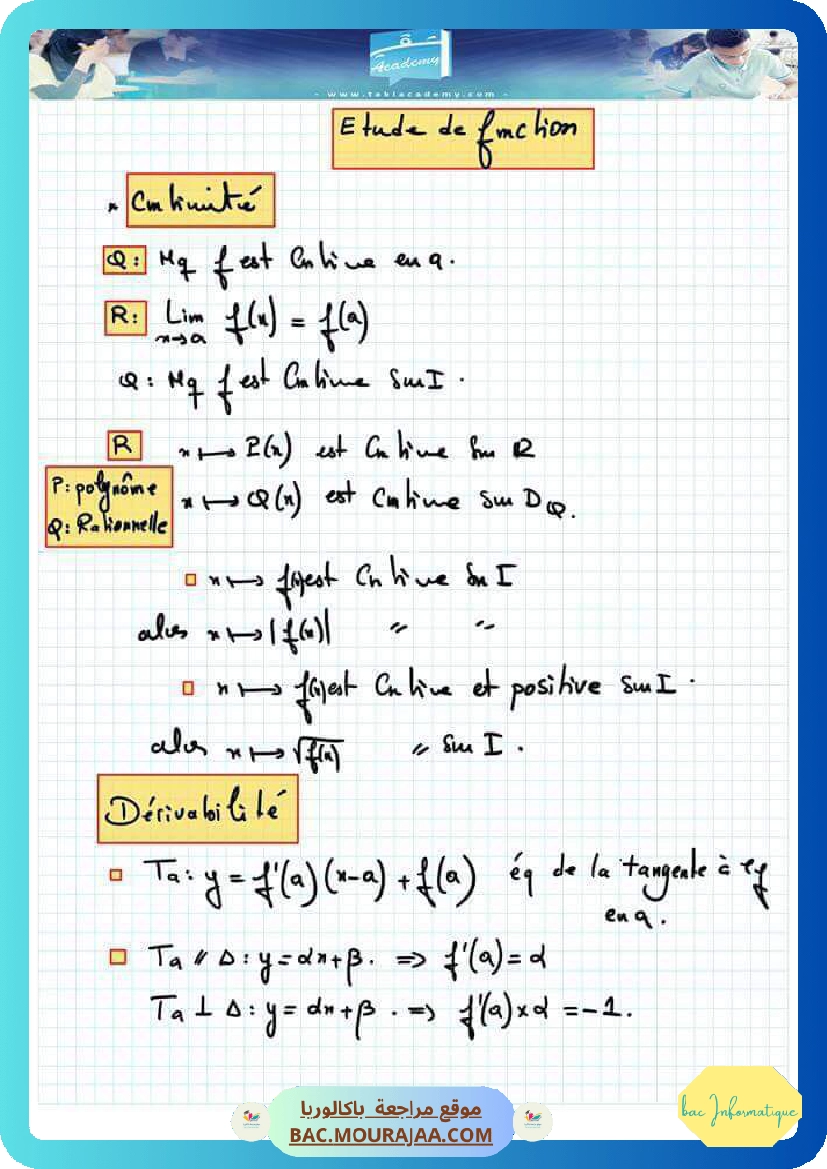 Academy
- www.takiacademy.com -
Etude de fonction
* Continuité
Q: Mq f est Continue en a.
R: Lim f(x) = f(a)
x→a
Q: Mq f est Continue sur I.
R x ↦ P(x) est Continue sur IR
P: polynôme
Q: Rationnelle
x ↦ Q(x) est Continue sur D_Q.
▫ x ↦ f(x) est Continue sur I
alors x ↦ |f(x)| " "
▫ x ↦ f(x) est Continue et positive sur I.
alors x ↦ √f(x) " sur I.
Dérivabilité
▫ Ta: y = f'(a)(x-a) + f(a) éq de la tangente à Cf
en a.
▫ Ta // Δ: y = αx + β. => f'(a) = α
Ta ⊥ Δ: y = αx + β. => f'(a) x α = -1.
موقع مراجعة باكالوريا
BAC.MOURAJAA.COM
bac Informatique